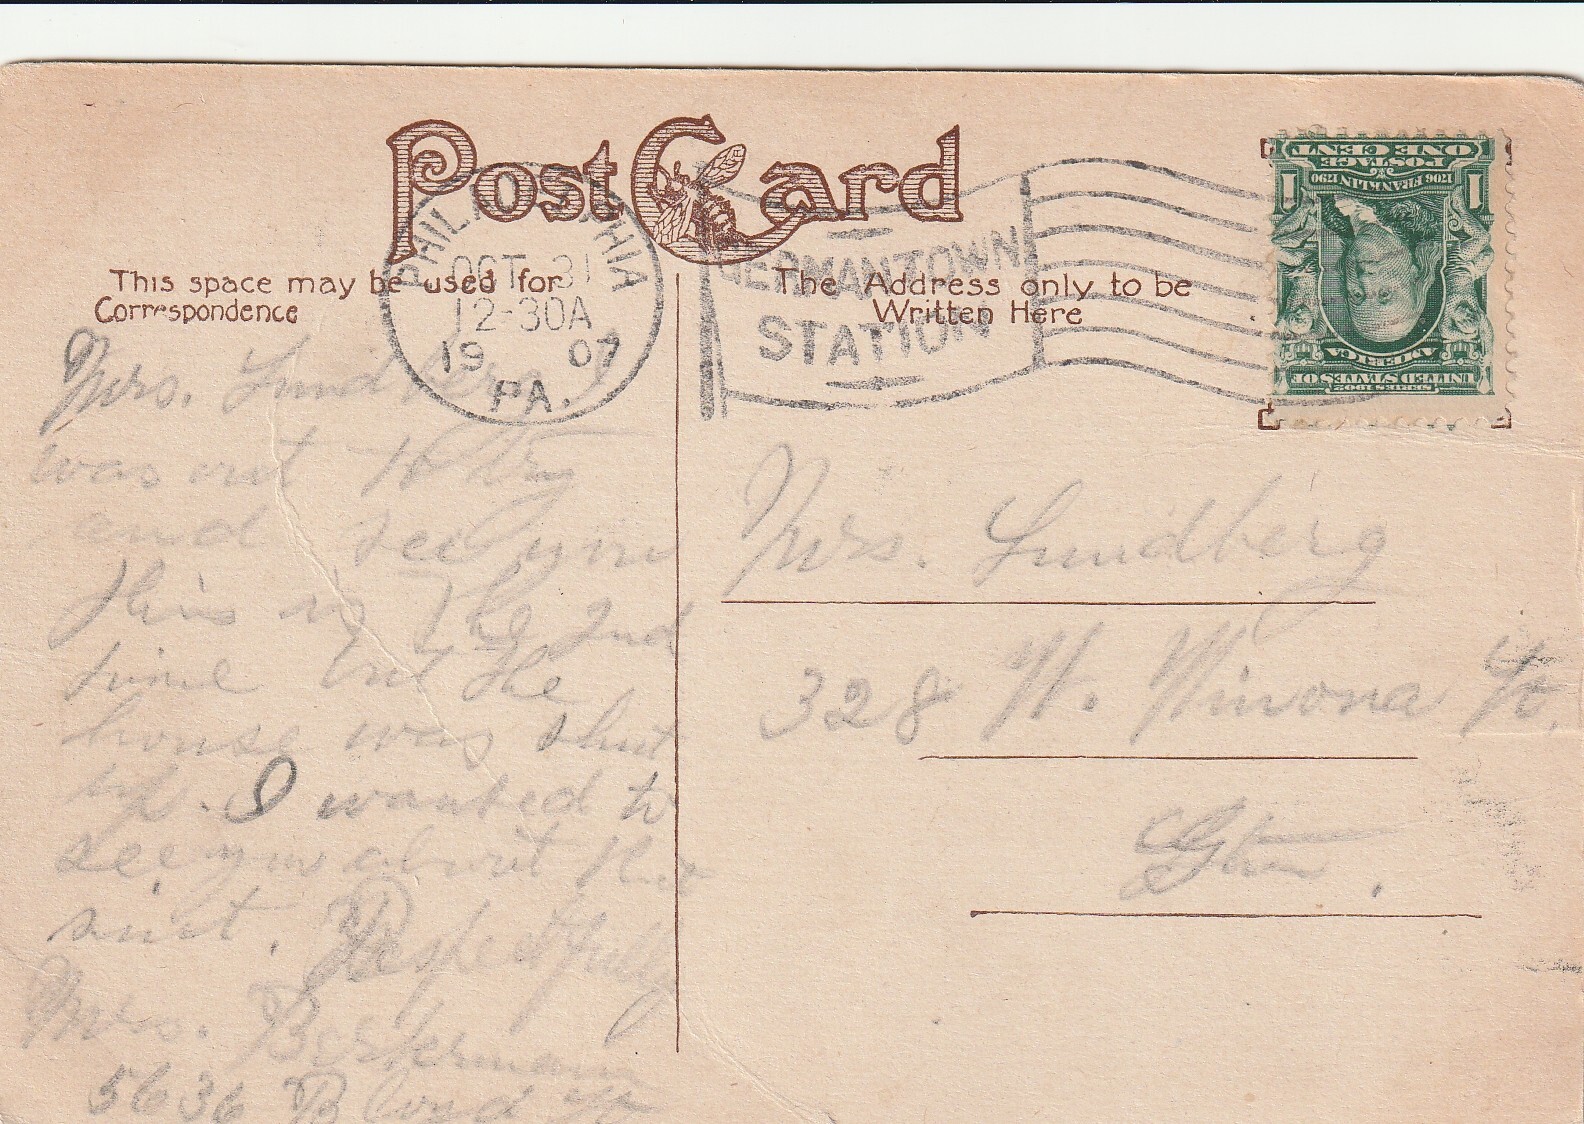 Post Card
PHILADELPHIA
OCT 31
12-30A
1907
PA.
GERMANTOWN
STATION
This space may be used for
Correspondence
The Address only to be
Written Here
ONE CENT
POSTAGE
1706 FRANKLIN 1790
1 1
AMERICA
UNITED STATES OF
SERIES 1902
Mrs. Lundberg I
was out to day
and see you
this is the 2nd
time but the
house was shut
up. I wanted to
see you about the
suit. Respectfully
Mrs.
5636 Blvd St
Mrs. Lundberg
328 W. Winona St.
Gtn.